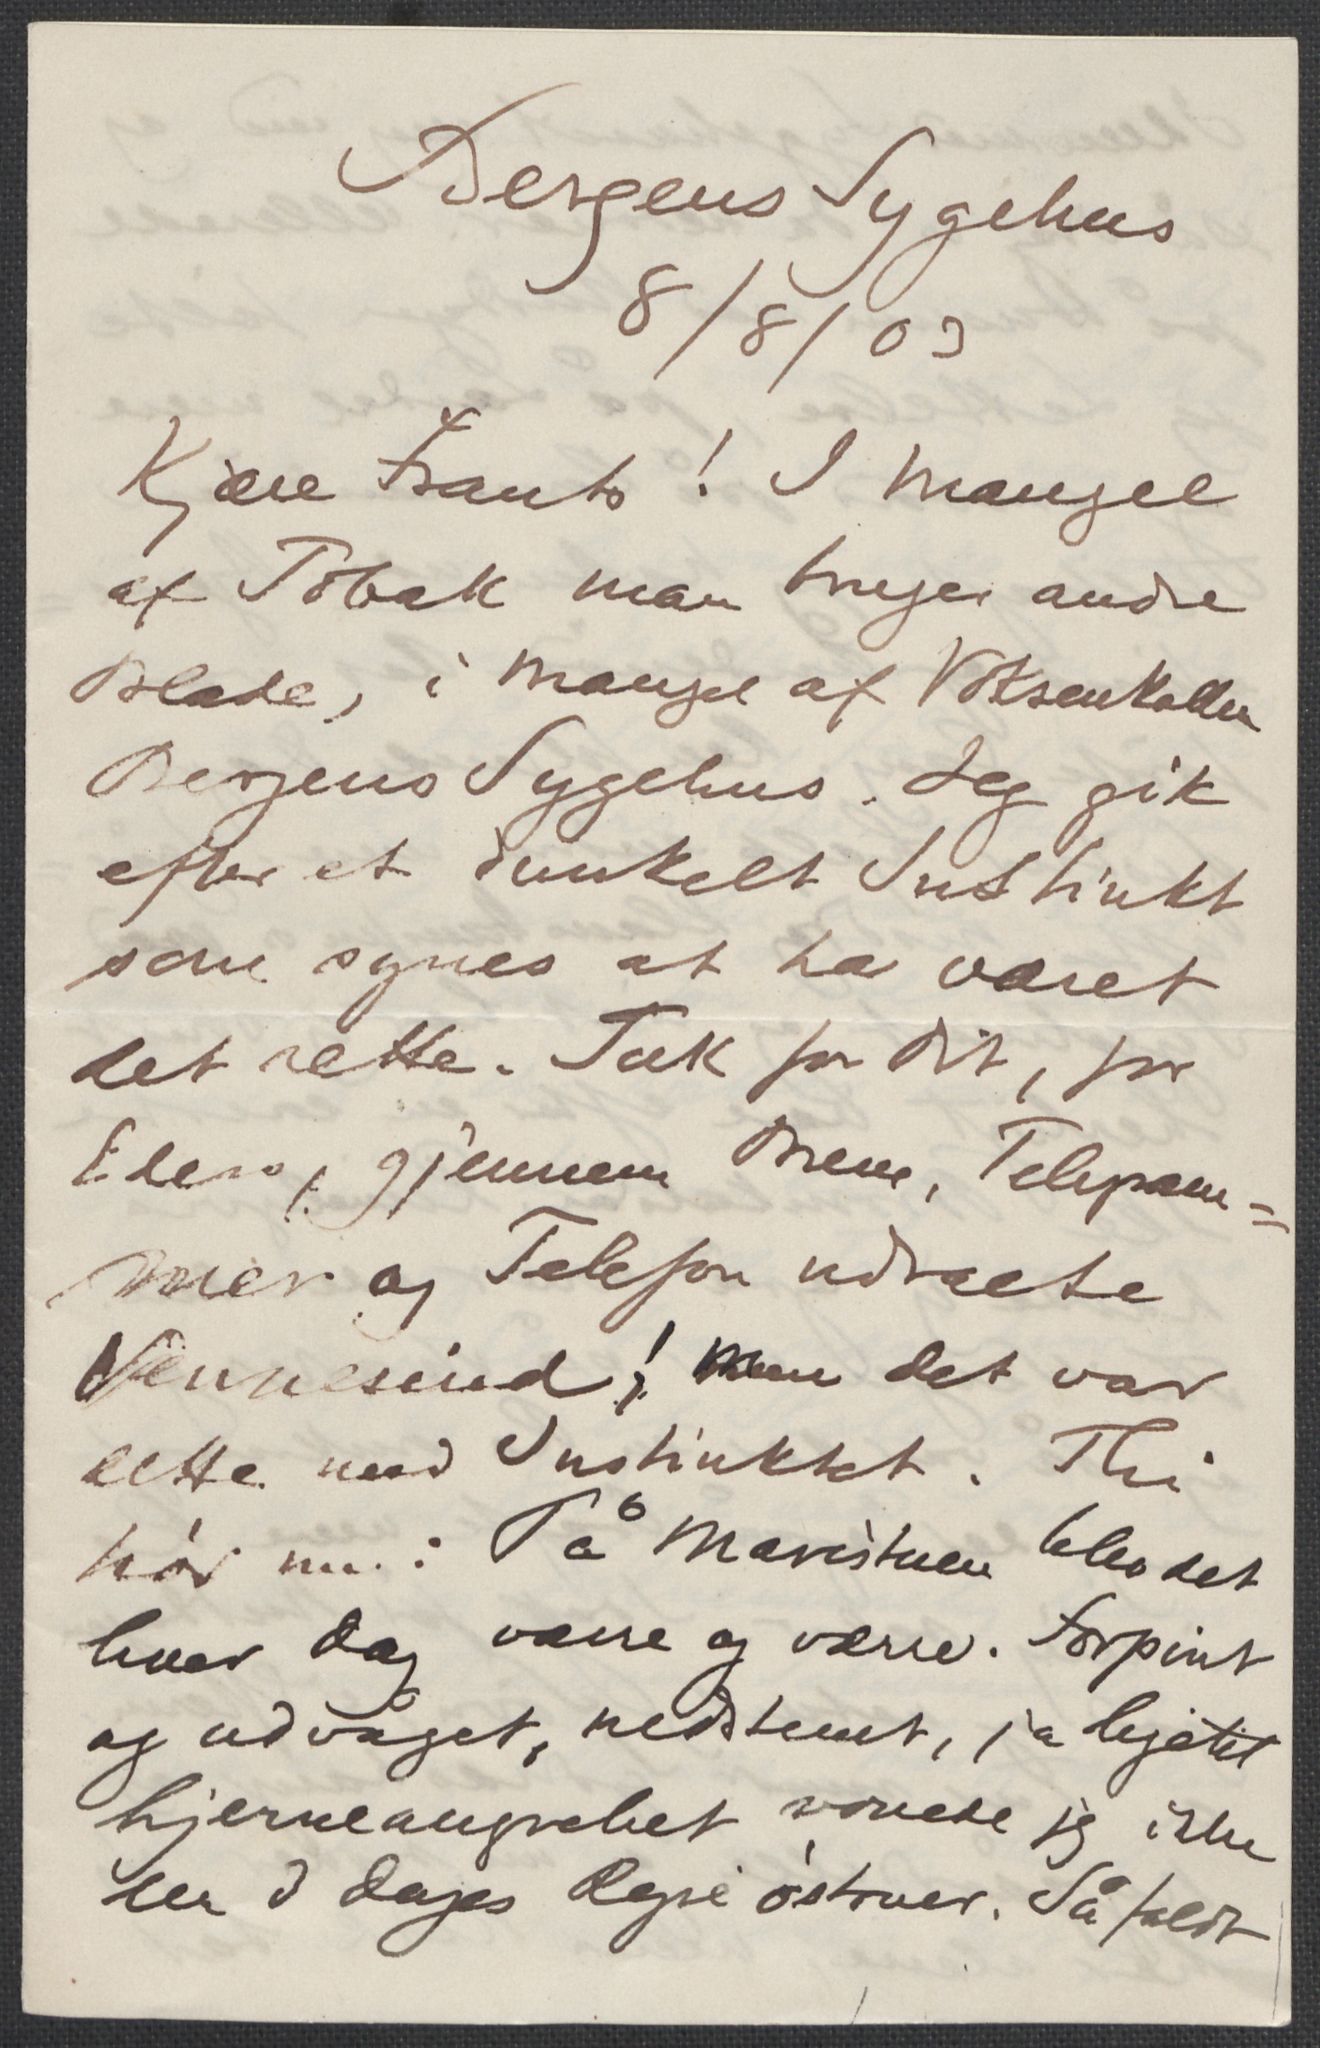 Bergens Sygehus
8/8/03
Kjære Frants! I Mangel
af Tobak man bruger andre
Blade, i Mangel af Voksenkollen
Bergens Sygehus. Jeg gik
efter et dunkelt Instinkt
som synes at ha været
det rette. Tak for Dit, for
Eders, gjennem Breve, Telegram=
mer og Telefon udtalte
Vennesind! Men det var
dette med Instinktet. Thi
hør nu: På Maristuen blev det
hver Dag værre og værre. Forpint
og udvåget, nedstemt, ja
hjerneangrebet vovede jeg ikke
den 3 Dages Reise østover. Så faldt